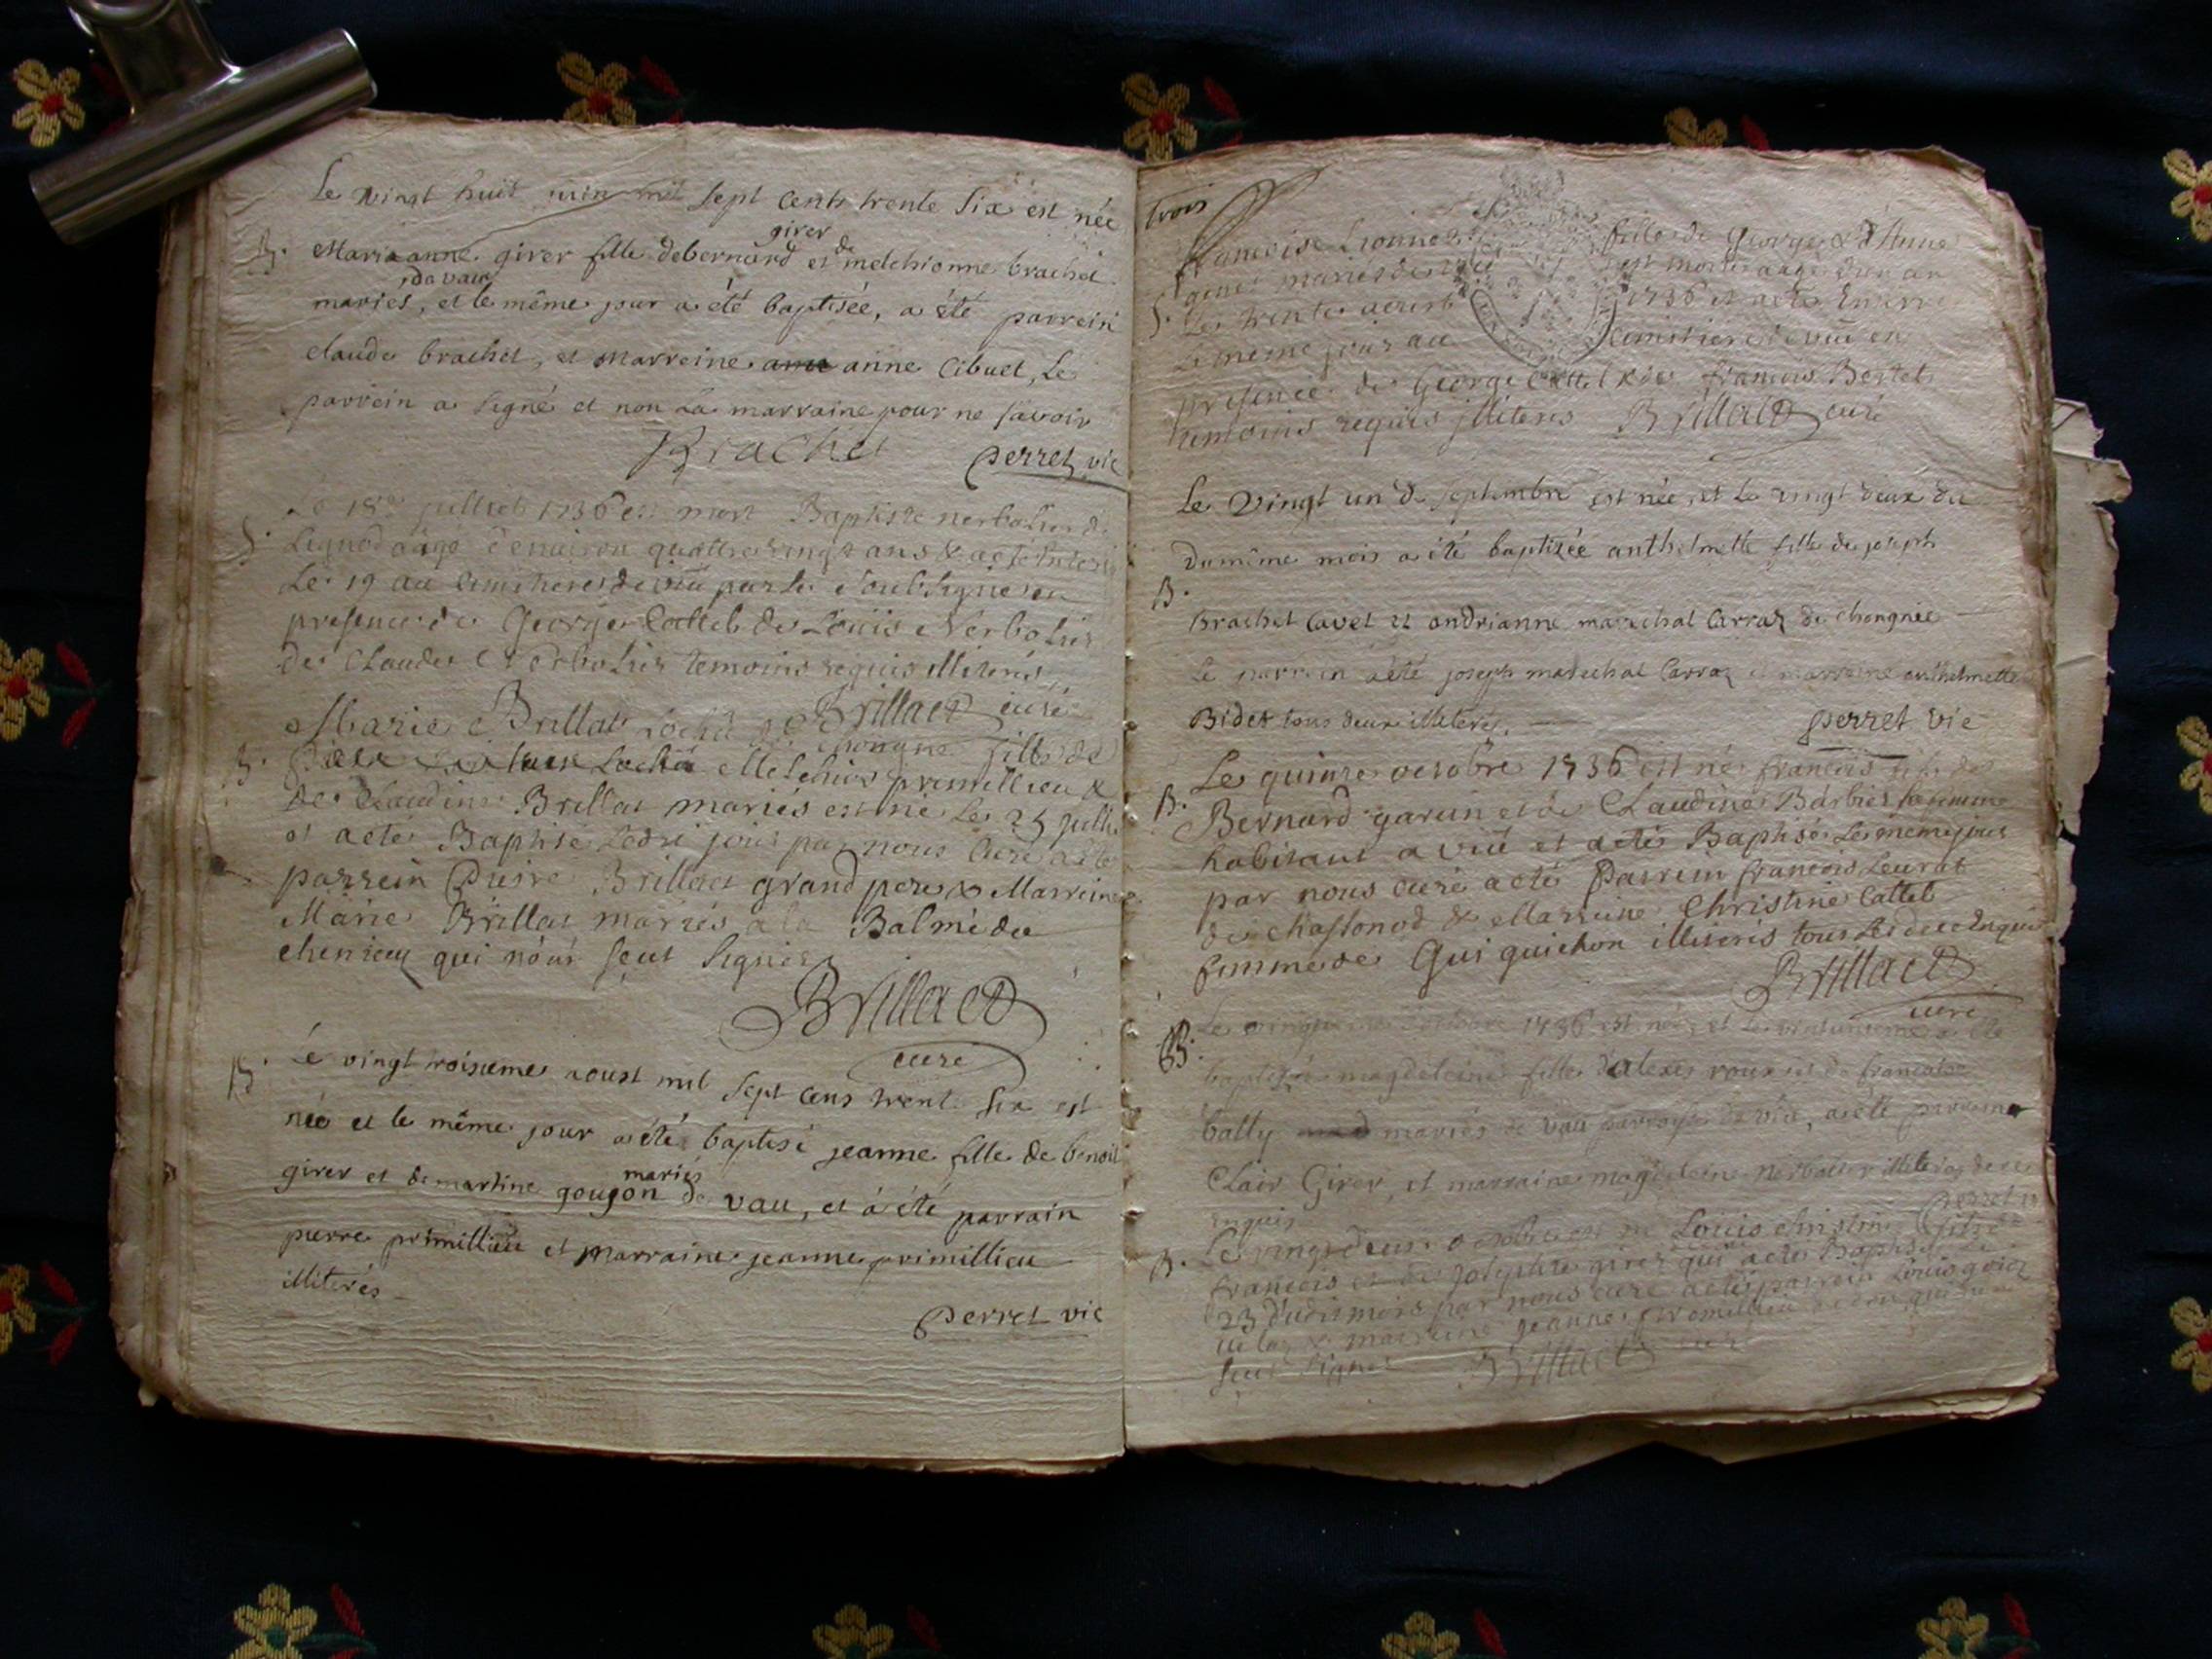 Le vingt huit juin mil sept cents trente six est née
B. Marianne girer fille de bernard girer et de melchionne brachet
mariés, de vau et le même jour a été baptisée, a été parrein
claude brachet, et marreine anne Cibuet, Le
parrein a signé et non La marraine pour ne savoir
Brachet perret vic
S. Le 18e juillet 1736 est mort Baptiste nerbolier de
Lignod aagé d'environ quattre vingt ans & a été
Le 19 au Cimitiere de viu par le soubsigné en
presence de George Cattel de Louis Nerbolier
de Claude Nerbolier temoins requis illiterés
Brillat curé
Marie Brillat fille de
B. Melchior primillieu &
de Claudine Brillat mariés est né Le 25 juillet
et a eté Baptisé Ledit jour par nous Curé a été
parrein Pierre Brillat grand pere & Marreine
Marie Brillat mariés a la Balme de
qui n'ont sçut signer
Brillat
curé
B. Le vingt troisieme aoust mil sept cens trent six est
née et le même jour a été baptisé jeanne fille de benoit
girer et de martine gougon mariés de vau, et à été parrain
pierre primillieu et marraine jeanne primillieu
illiterés
perret vic
trois
francoise fille de George & d'Anne
mariés est morte aagé d'un an
S. Le trente 1736 et a eté
Le meme jour au cimitiere de viu en
presence de George Cattel & de francois Bertet
temoins requis illiteres Brillat curé
Le vingt un de septembre est née, et Le vingt deux du
du même mois a été baptizée anthelmette fille de joseph
B.
Brachet Cavet et andrianne marechal Carraz de chongnie
Le parrein a été joseph marechal Carraz et marreine anthelmette
Bidet tous deux illiterés. perret vic
B. Le quinze octobre 1736 est né francois fils de
Bernard garin et de Claudine Barbier sa femme
habitant a viu et a eté Baptisé Le meme jour
par nous curé a eté Parrein francois Leurat
de chassonod & Marreine Christine Cattet
femme de Gui guichon illiteris tous Les deux Enquis
Brillat
curé
B. Le octobre 1736 est née, et Le a été
baptizée magdeleine fille d'alexis roux et de francoise
bally mariés de vau parroisse de viu, a été parrain
Clair Girer, et marraine magdeleine nerbolier illiterés de ce
enquis perret vic
B. Le vingt deux octobre est né Louis christin fils de
francois et de josephte girer qui a eté Baptisé Le
23 dudit mois par nous curé a eté parrein Louis
& marreine jeanne
sçut signer Brillat curé